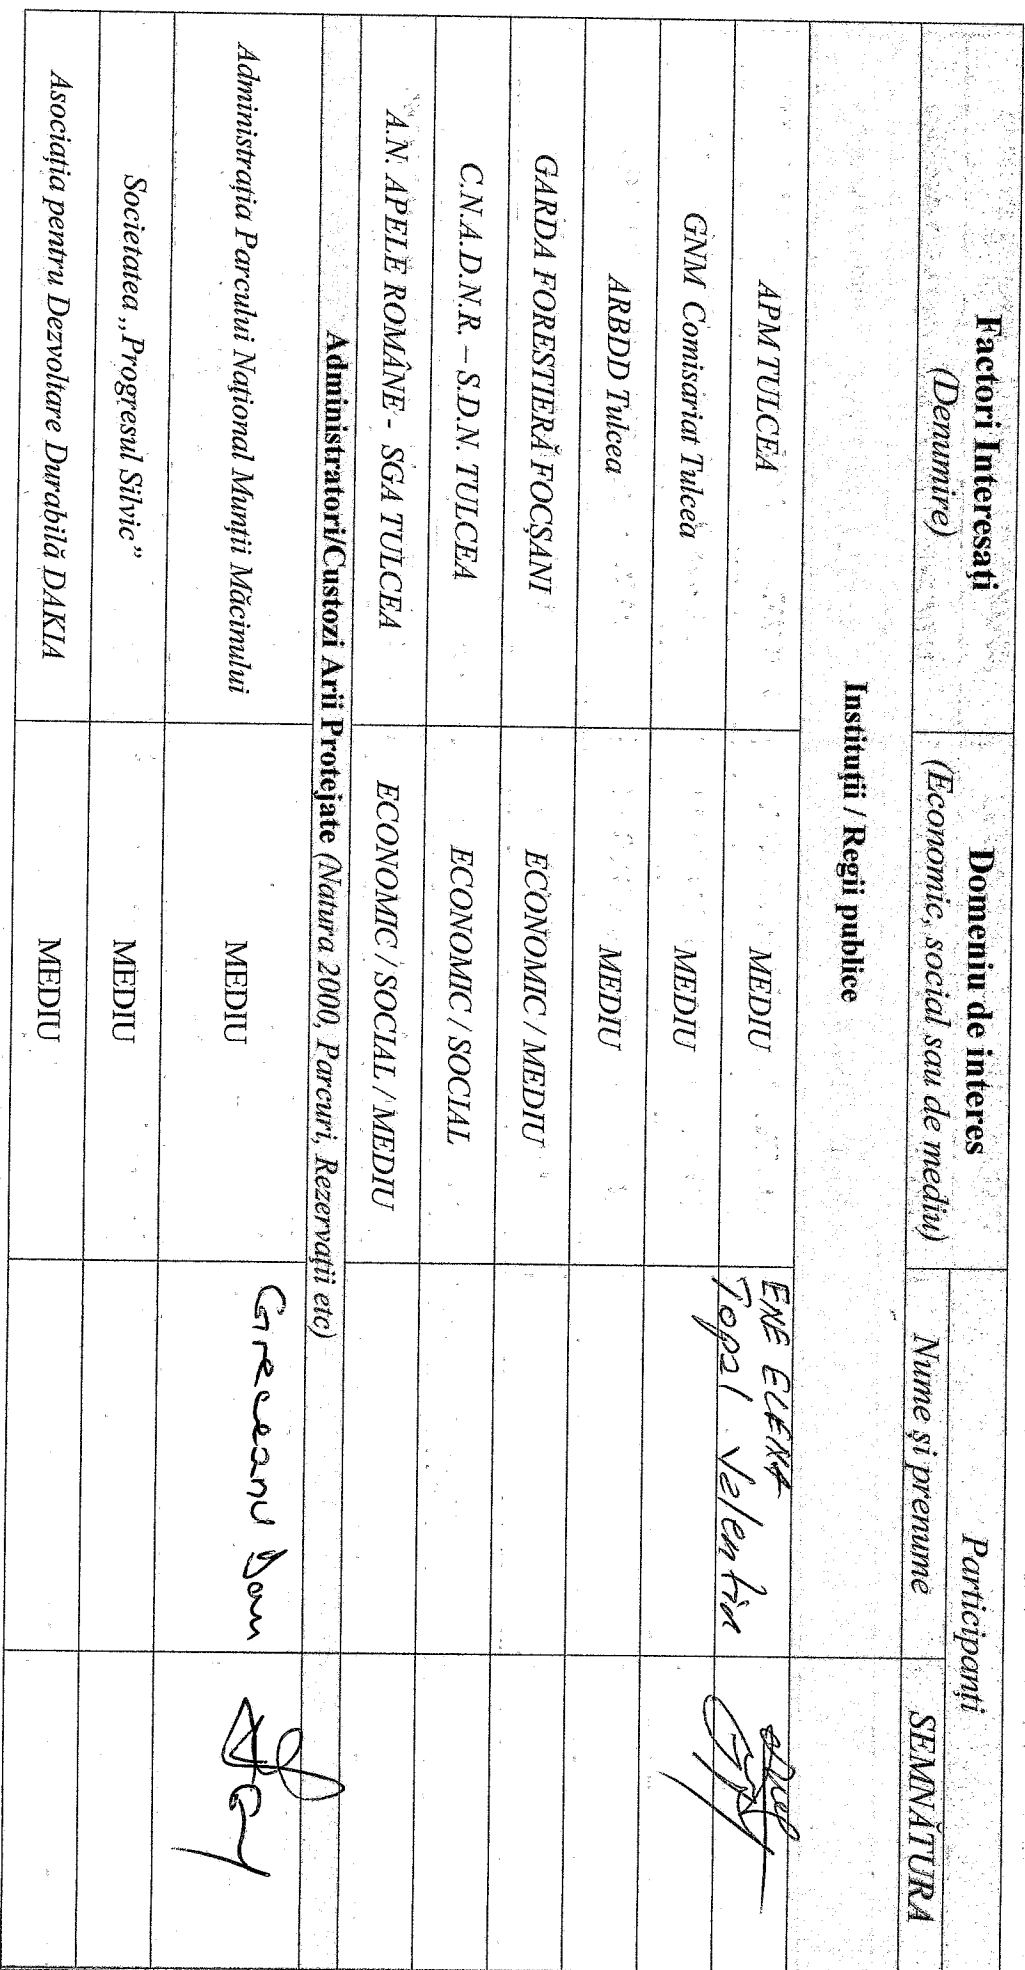 Factori Interesați
(Denumire)
Domeniu de interes
(Economic, social sau de mediu)
Participanți
Nume și prenume
SEMNĂTURA
Instituții / Regii publice
APM TULCEA
MEDIU
ENE ELENA
Topal Valentin
GNM Comisariat Tulcea
MEDIU
ARBDD Tulcea
MEDIU
GARDA FORESTIERĂ FOCȘANI
ECONOMIC / MEDIU
C.N.A.D.N.R. – S.D.N. TULCEA
ECONOMIC / SOCIAL
A.N. APELE ROMÂNE - SGA TULCEA
ECONOMIC / SOCIAL / MEDIU
Administratori/Custozi Arii Protejate (Natura 2000, Parcuri, Rezervații etc)
Administrația Parcului Național Munții Măcinului
MEDIU
Greceanu Dan
Societatea „Progresul Silvic”
MEDIU
Asociația pentru Dezvoltare Durabilă DAKIA
MEDIU